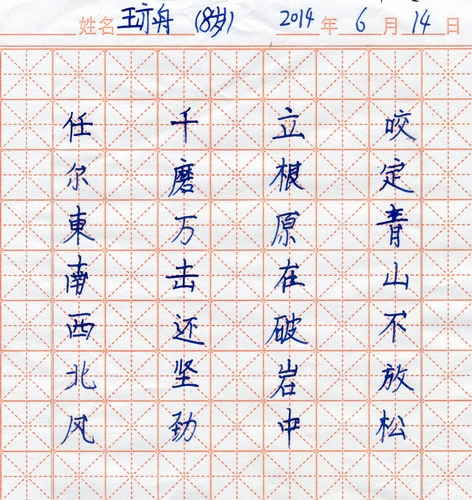 姓名 王亦舟 (8岁) 2014 年 6 月 14 日
咬定青山不放松
立根原在破岩中
千磨万击还坚劲
任尔東南西北风